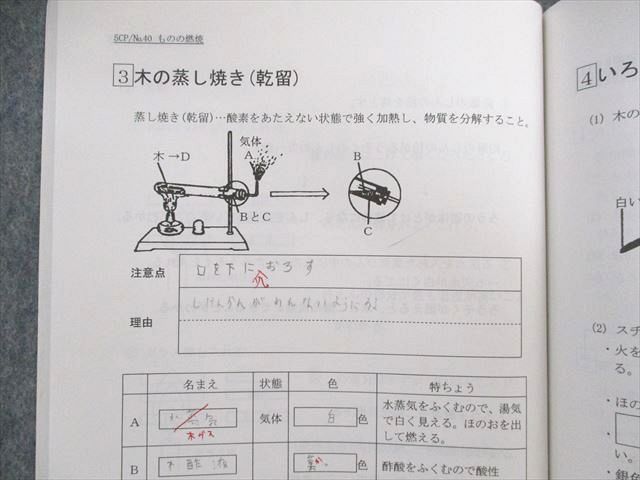 5CP/No.40 ものの燃焼
3 木の蒸し焼き(乾留)
蒸し焼き(乾留)…酸素をあたえない状態で強く加熱し、物質を分解すること。
木→D
気体
A
BとC
B
C
注意点
口を下におろす
理由
しけんかんがわれないようにする
名まえ
状態
色
特ちょう
A
水蒸気
木ガス
気体
白
色
水蒸気をふくむので、湯気
で白く見える。ほのおを出
して燃える。
B
木酢液
色
酢酸をふくむので酸性
4 いろ
(1) 木の
白い
(2) スチ
・火を
る。
・ほの
い。
・銀色